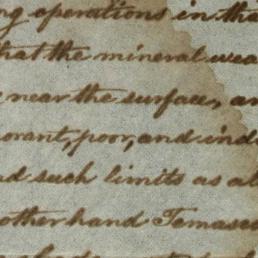 ng operations in tha
that the mineral wea
near the surface, an
norant, poor, and ind
ad such limits as al
other hand Temasc